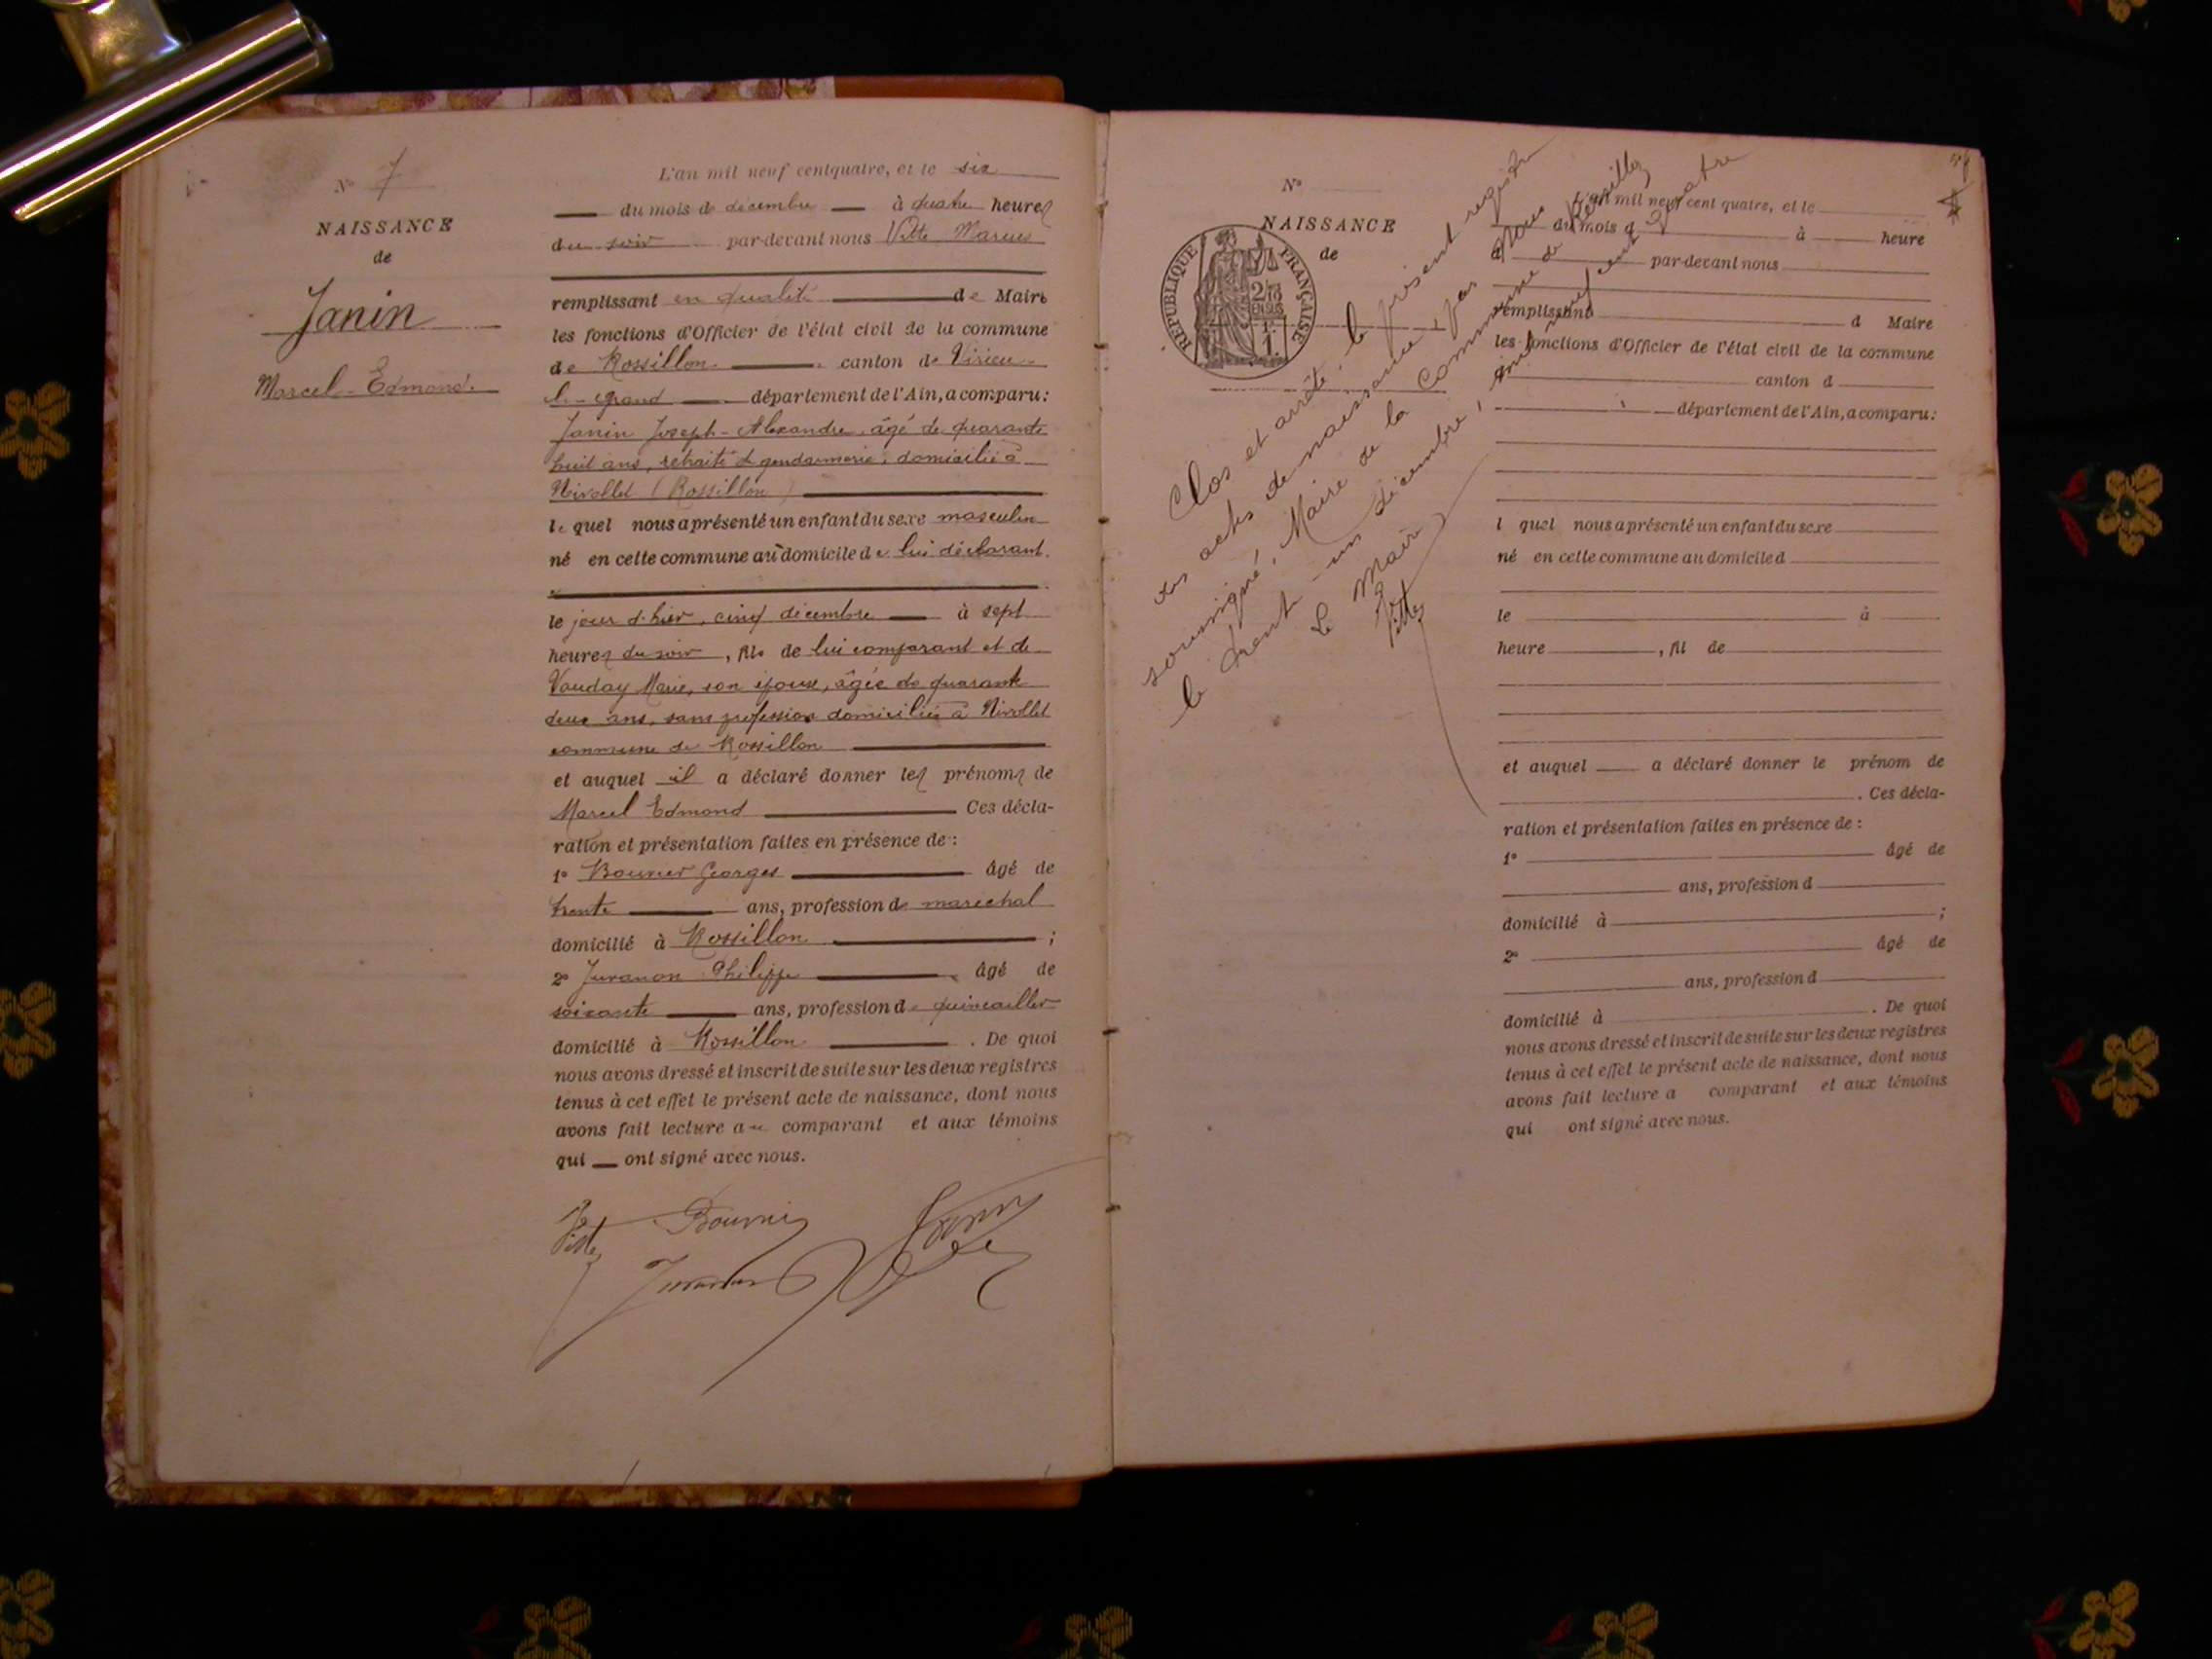 N° 7
NAISSANCE
de
Janin
Marcel-Edmond.
L'an mil neuf cent quatre, et le six
du mois de décembre à quatre heures
du soir par-devant nous Vitte Marius
remplissant en qualité de Maire
les fonctions d'Officier de l'état civil de la commune
de Rossillon. canton de Virieu-
le-grand département de l'Ain, a comparu:
Janin Joseph-Alexandre, âgé de quarante
huit ans, retraité de gendarmerie, domicilié à
Nivollet (Rossillon)
le quel nous a présenté un enfant du sexe masculin
né en cette commune au domicile de lui déclarant.
le jour d'hier, cinq décembre à sept
heures du soir, fils de lui comparant et de
Vauday Marie, son épouse, âgée de quarante
deux ans, sans profession domiciliée à Nivollet
commune de Rossillon
et auquel il a déclaré donner les prénoms de
Marcel Edmond Ces décla-
ration et présentation faites en présence de :
1° Bounier Georges âgé de
trente ans, profession de maréchal
domicilié à Rossillon ;
2° Juranon Philippe âgé de
soixante ans, profession de quincailler
domicilié à Rossillon . De quoi
nous avons dressé et inscrit de suite sur les deux registres
tenus à cet effet le présent acte de naissance, dont nous
avons fait lecture au comparant et aux témoins
qui ont signé avec nous.
Vitte
N°
NAISSANCE
de
RÉPUBLIQUE FRANÇAISE
2/10 EN SUS
Clos et arrêté le présent registre
des actes de naissance, par Nous
soussigné, Maire de la Commune de Rossillon
le trente-un décembre, mil neuf cent quatre
Le Maire
Vitte
L'an mil neuf cent quatre, et le
du mois d à heure
par-devant nous
remplissant d Maire
les fonctions d'Officier de l'état civil de la commune
canton d
département de l'Ain, a comparu:
l quel nous a présenté un enfant du sexe
né en cette commune au domicile d
le à
heure , fil de
et auquel a déclaré donner le prénom de
. Ces décla-
ration et présentation faites en présence de :
1° âgé de
ans, profession d
domicilié à ;
2° âgé de
ans, profession d
domicilié à . De quoi
nous avons dressé et inscrit de suite sur les deux registres
tenus à cet effet le présent acte de naissance, dont nous
avons fait lecture a comparant et aux témoins
qui ont signé avec nous.